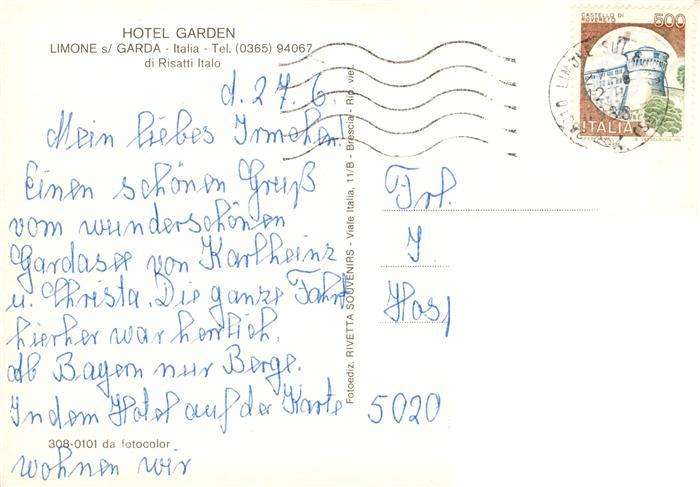 HOTEL GARDEN
LIMONE s/ GARDA - Italia - Tel. (0365) 94067
di Risatti Italo
d. 27. 6.
Mein liebes Irmchen!
Einen schönen Gruß
vom wunderschönen
Gardasee von Karlheinz
u. Christa. Die ganze Fahrt
hierher war herrlich.
Ab Bayern nur Berge.
In dem Hotel auf der Karte
wohnen wir
308-0101 da fotocolor
Fotoediz. RIVETTA SOUVENIRS - Viale Italia, 11/B - Brescia - Rip. viet.
CASTELLO DI
ROVERETO
500
ITALIA
LIMONE SUL
Frl.
I
Has
5020